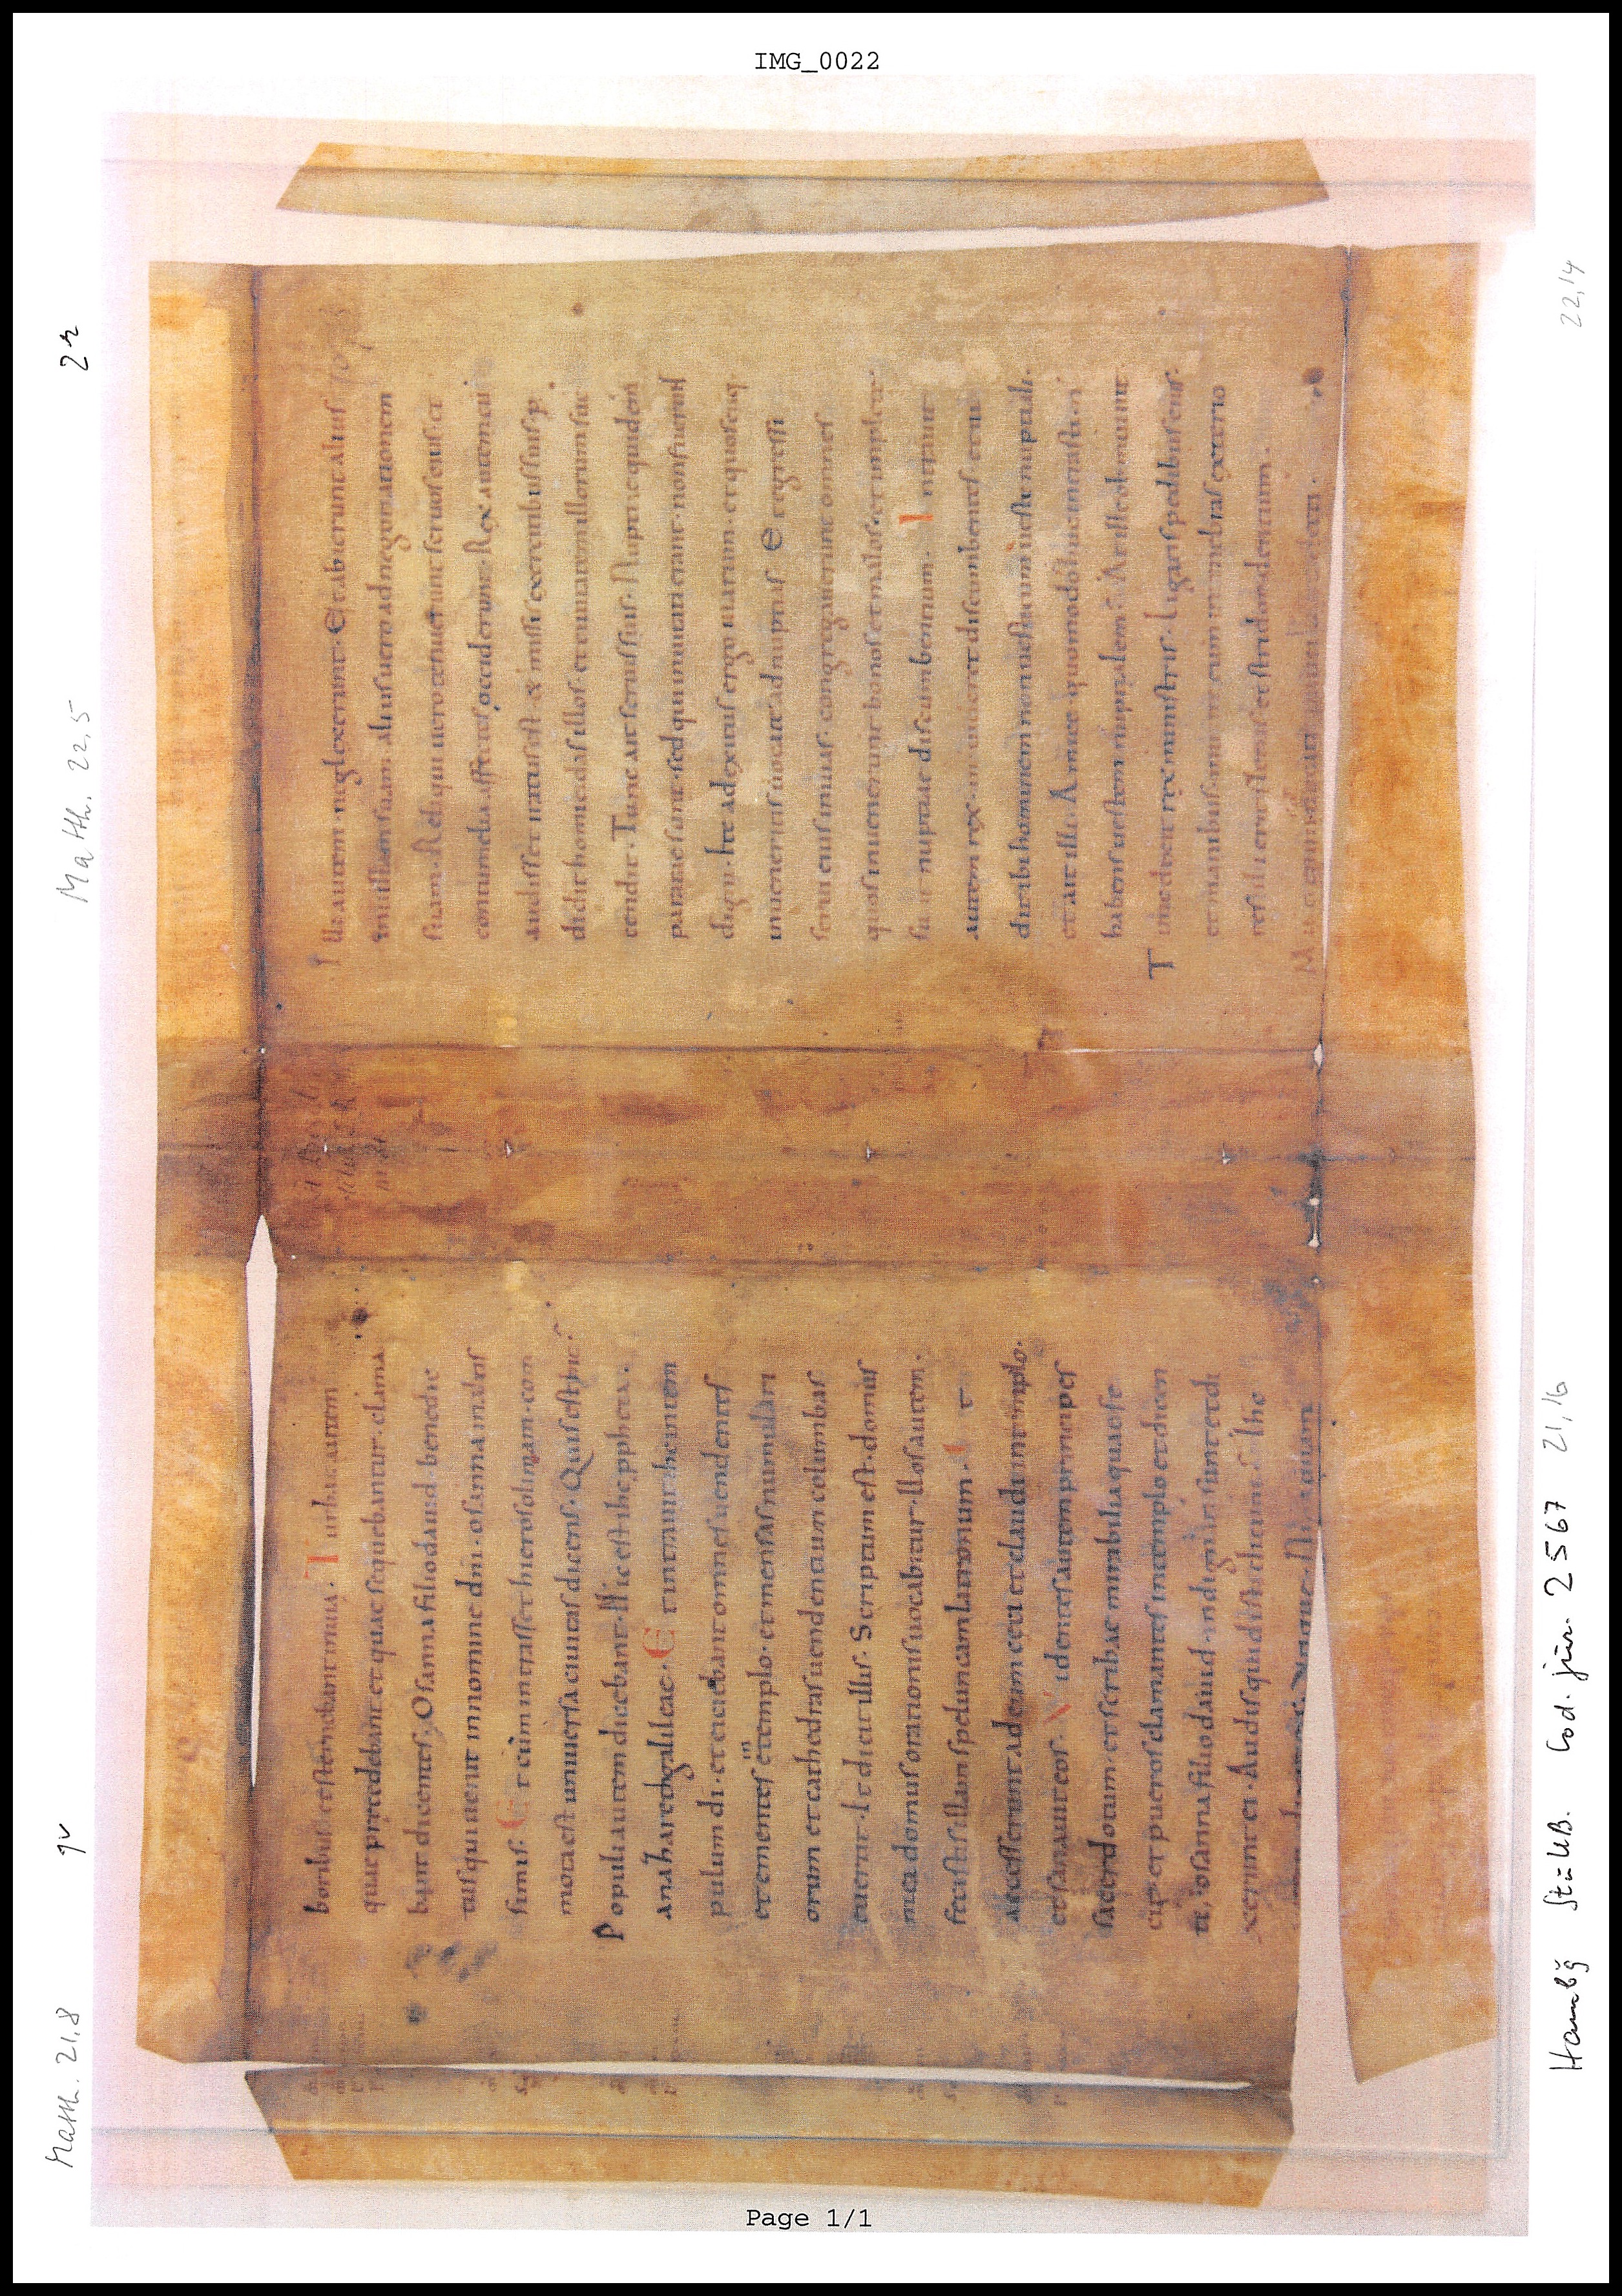 IMG_0022
Math. 21,8
1v
Math. 22,5
2r
boribus et sternebant in uia. Turbae autem
quae praecedebant et quae sequebantur. clama
bant dicentes; Osanna filio dauid. benedic
tus qui uenit in nomine dni. osanna in altis
simis. Et cum intrasset hierosolimam. com
mota est uniuersa ciuitas dicens. Quis est hic.
Populi autem dicebant. Hic est ihc propheta.
a nazareth galileae. Et intrauit ihc in tem
plum di. et eiciebat omnes uendentes
et ementes in templo. et mensas nummulari
orum et cathedras uendentium columbas
euertit. Et dicit illis. Scriptum est. domus
mea domus orationis uocabitur. uos autem
fecistis illam speluncam latronum. Et
accesserunt ad eum ceci et claudi in templo.
et sanauit eos. Videntes autem principes
sacerdotum. et scribae mirabilia quae fe
cit. et pueros clamantes in templo et dicen
tes; osanna filio dauid. indignati sunt et di
xerunt ei. Audis quid isti dicunt. ihc
Illi autem neglexerunt. Et abierunt alius
in uillam suam. alius uero ad negotiationem
suam. Reliqui uero tenuerunt seruos eius. et
contumelia affectos occiderunt. Rex autem cu
audisset iratus est. & missis exercitibus suis p
didit homicidas illos. et ciuitatem illorum suc
cendit. Tunc ait seruis suis. Nuptiae quidem
paratae sunt. sed qui inuitati erant. non fuerunt
digni. Ite ad exitus ergo uiarum. et quoscuq
inueneritis uocate ad nuptias. Et egressi
serui eius in uias. congregauerunt omnes
quos inuenerunt bonos et malos. et impletae
su nt nuptiae discumbentium. Intrauit
autem rex. ut uideret discumbentes. et ui
dit ibi hominem non uestitum ueste nuptiali.
et ait illi. Amice quomodo huc intrasti. n
habens uestem nuptialem. At ille obmutuit.
Tunc dixit rex ministris. Ligatis pedibus eius.
et manibus. mittite eum in tenebras exterio
res. ibi erit fletus et stridor dentium.
Hambg StaUB. Cod. jur. 2567
21,16
22,14
Page 1/1